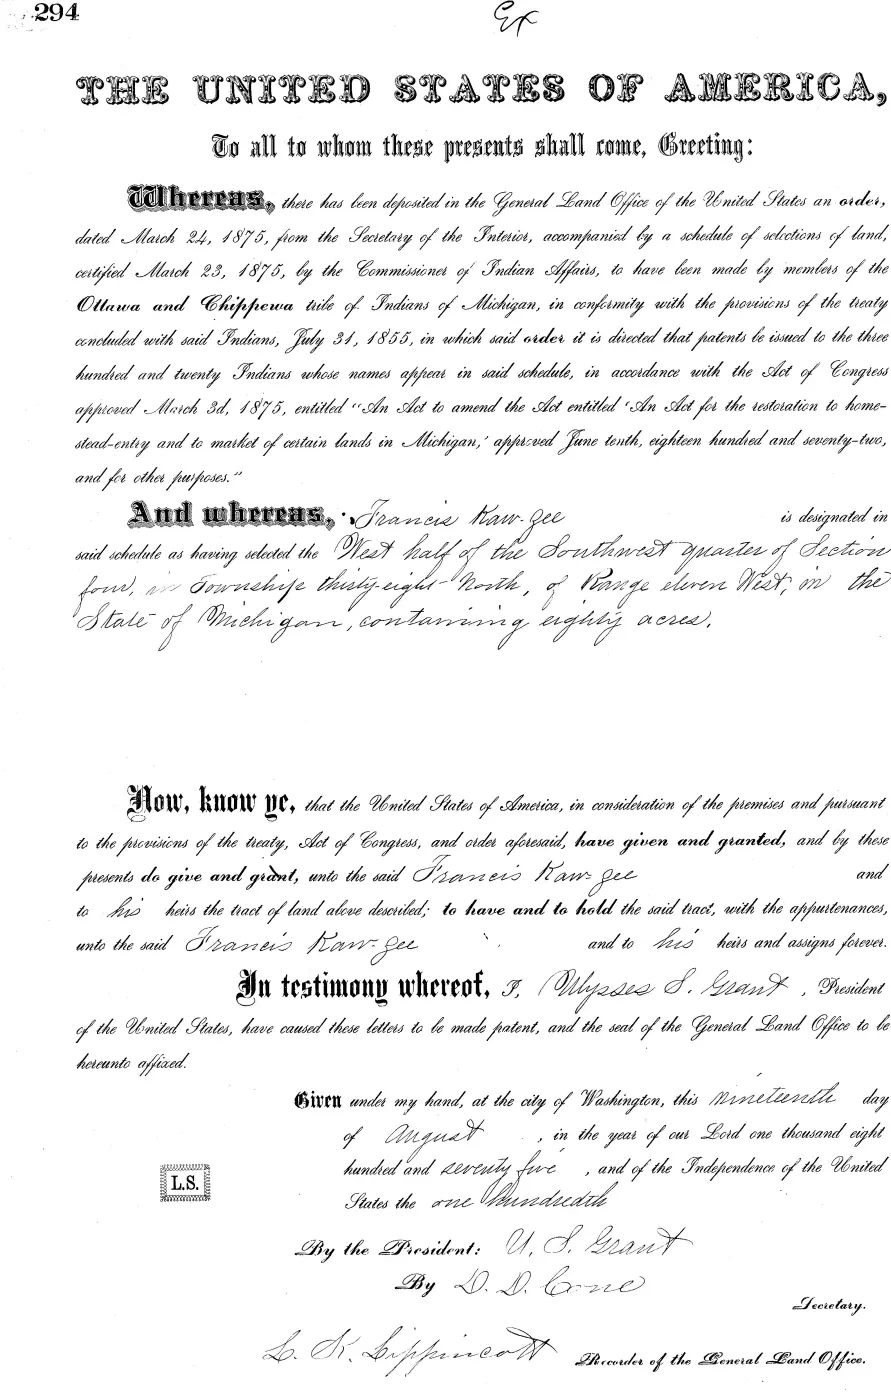 294
Ex
THE UNITED STATES OF AMERICA,
To all to whom these presents shall come, Greeting:
Whereas, there has been deposited in the General Land Office of the United States an order,
dated March 24, 1875, from the Secretary of the Interior, accompanied by a schedule of selections of land,
certified March 23, 1875, by the Commissioner of Indian Affairs, to have been made by members of the
Ottawa and Chippewa tribe of Indians of Michigan, in conformity with the provisions of the treaty
concluded with said Indians, July 31, 1855, in which said order it is directed that patents be issued to the three
hundred and twenty Indians whose names appear in said schedule, in accordance with the Act of Congress
approved March 3d, 1875, entitled "An Act to amend the Act entitled 'An Act for the restoration to home-
stead-entry and to market of certain lands in Michigan,' approved June tenth, eighteen hundred and seventy-two,
and for other purposes."
And whereas, Francis Kaw-gee is designated in
said schedule as having selected the West half of the Southwest quarter of Section
four, in Township thirty-eight North, of Range eleven West, in the
State of Michigan, containing eighty acres.
Now, know ye, that the United States of America, in consideration of the premises and pursuant
to the provisions of the treaty, Act of Congress, and order aforesaid, have given and granted, and by these
presents do give and grant, unto the said Francis Kaw-gee and
to his heirs the tract of land above described; to have and to hold the said tract, with the appurtenances,
unto the said Francis Kaw-gee and to his heirs and assigns forever.
In testimony whereof, I, Ulysses S. Grant, President
of the United States, have caused these letters to be made patent, and the seal of the General Land Office to be
hereunto affixed.
Given under my hand, at the city of Washington, this nineteenth day
of August, in the year of our Lord one thousand eight
hundred and seventy five, and of the Independence of the United
States the one hundredth
L.S.
By the President: U. S. Grant
By D. D. Cone
Secretary.
L. K. Lippincott Recorder of the General Land Office.